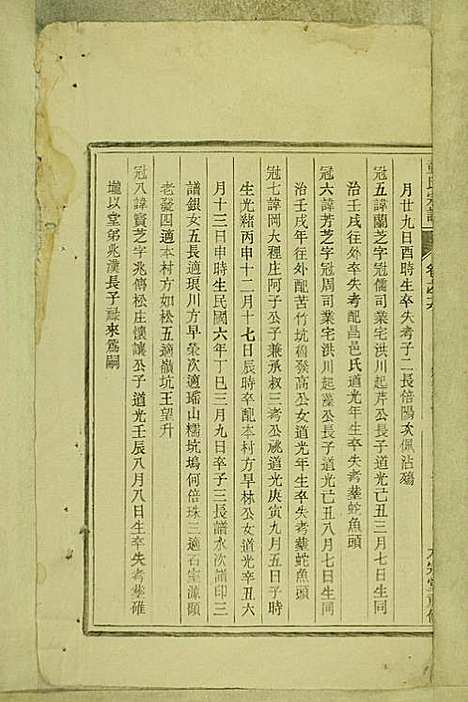 月廿九日酉時生卒失考子二長倍陽次佩沾殤
冠五諱蘭芝字冠儒司業宅洪川起芹公長子道光己丑三月七日生同
治壬戌往外卒失考配昌邑氏道光年生卒失考葬蛇魚頭
冠六諱芳芝字冠周司業宅洪川起藻公長子道光己丑八月七日生同
治壬戌年往外配苦竹坑發高公女道光年生卒失考葬蛇魚頭
冠七諱岡大種庄阿子公子兼承叔三考公祧道光庚寅九月五日子時
生光緒丙申十二月十七日辰時卒配本村方早林公女道光辛丑六
月十三日申時生民國六年丁巳三月九日卒子三長譜水次譜印三
譜銀女五長適環川方早榮次適璠山檽坑塢何倍珠三適石室源頤
老發四適本村方如松五適嶺坑王望升
冠八諱寶芝字兆傳松庄懷讓公子道光壬辰八月八日生卒失考葬碓
壠以堂弟兆漢長子祿來為嗣